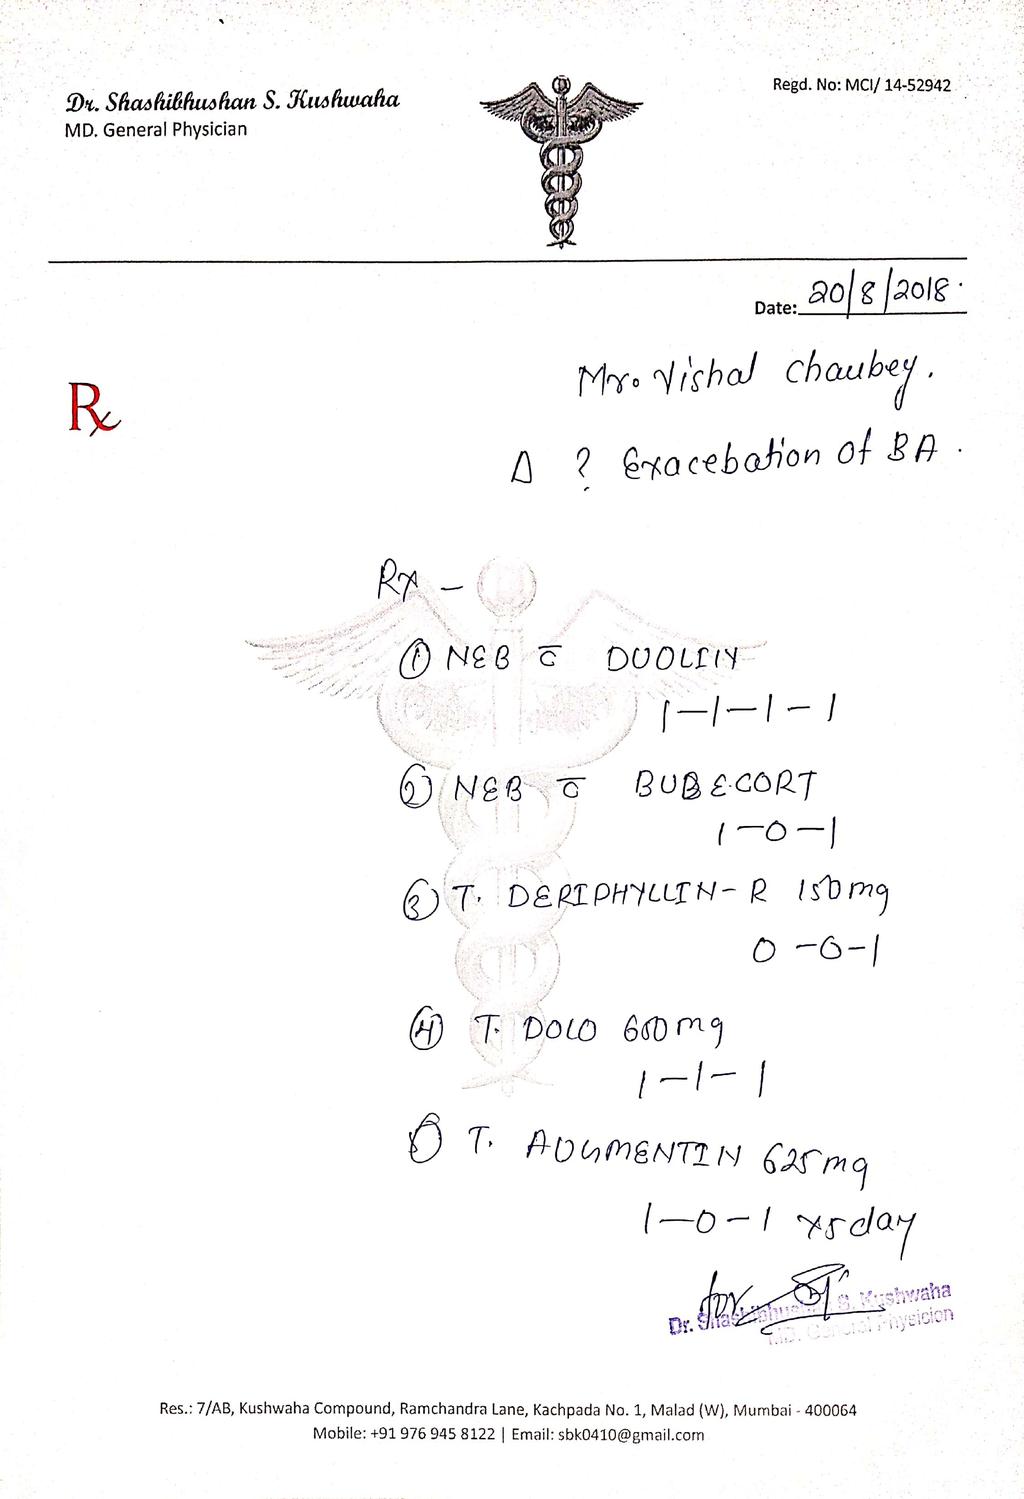 Dr. Shashibhushan S. Kushwaha
MD. General Physician
Regd. No: MCI/ 14-52942
Date: 20/8/2018.
Rx
Mr. Vishal Chaubey.
Δ ? Exacebation of BA.
Rx -
① NEB c̅ DUOLIN
1-1-1-1
② NEB c̅ BUDECORT
1-0-1
③ T. DERIPHYLLIN-R 150mg
0-0-1
④ T. DOLO 600mg
1-1-1
⑤ T. AUGMENTIN 625mg
1-0-1 x5day
for
Dr. Shashibhushan S. Kushwaha
MD. General Physicion
Res.: 7/AB, Kushwaha Compound, Ramchandra Lane, Kachpada No. 1, Malad (W), Mumbai - 400064
Mobile: +91 976 945 8122 | Email: sbk0410@gmail.com